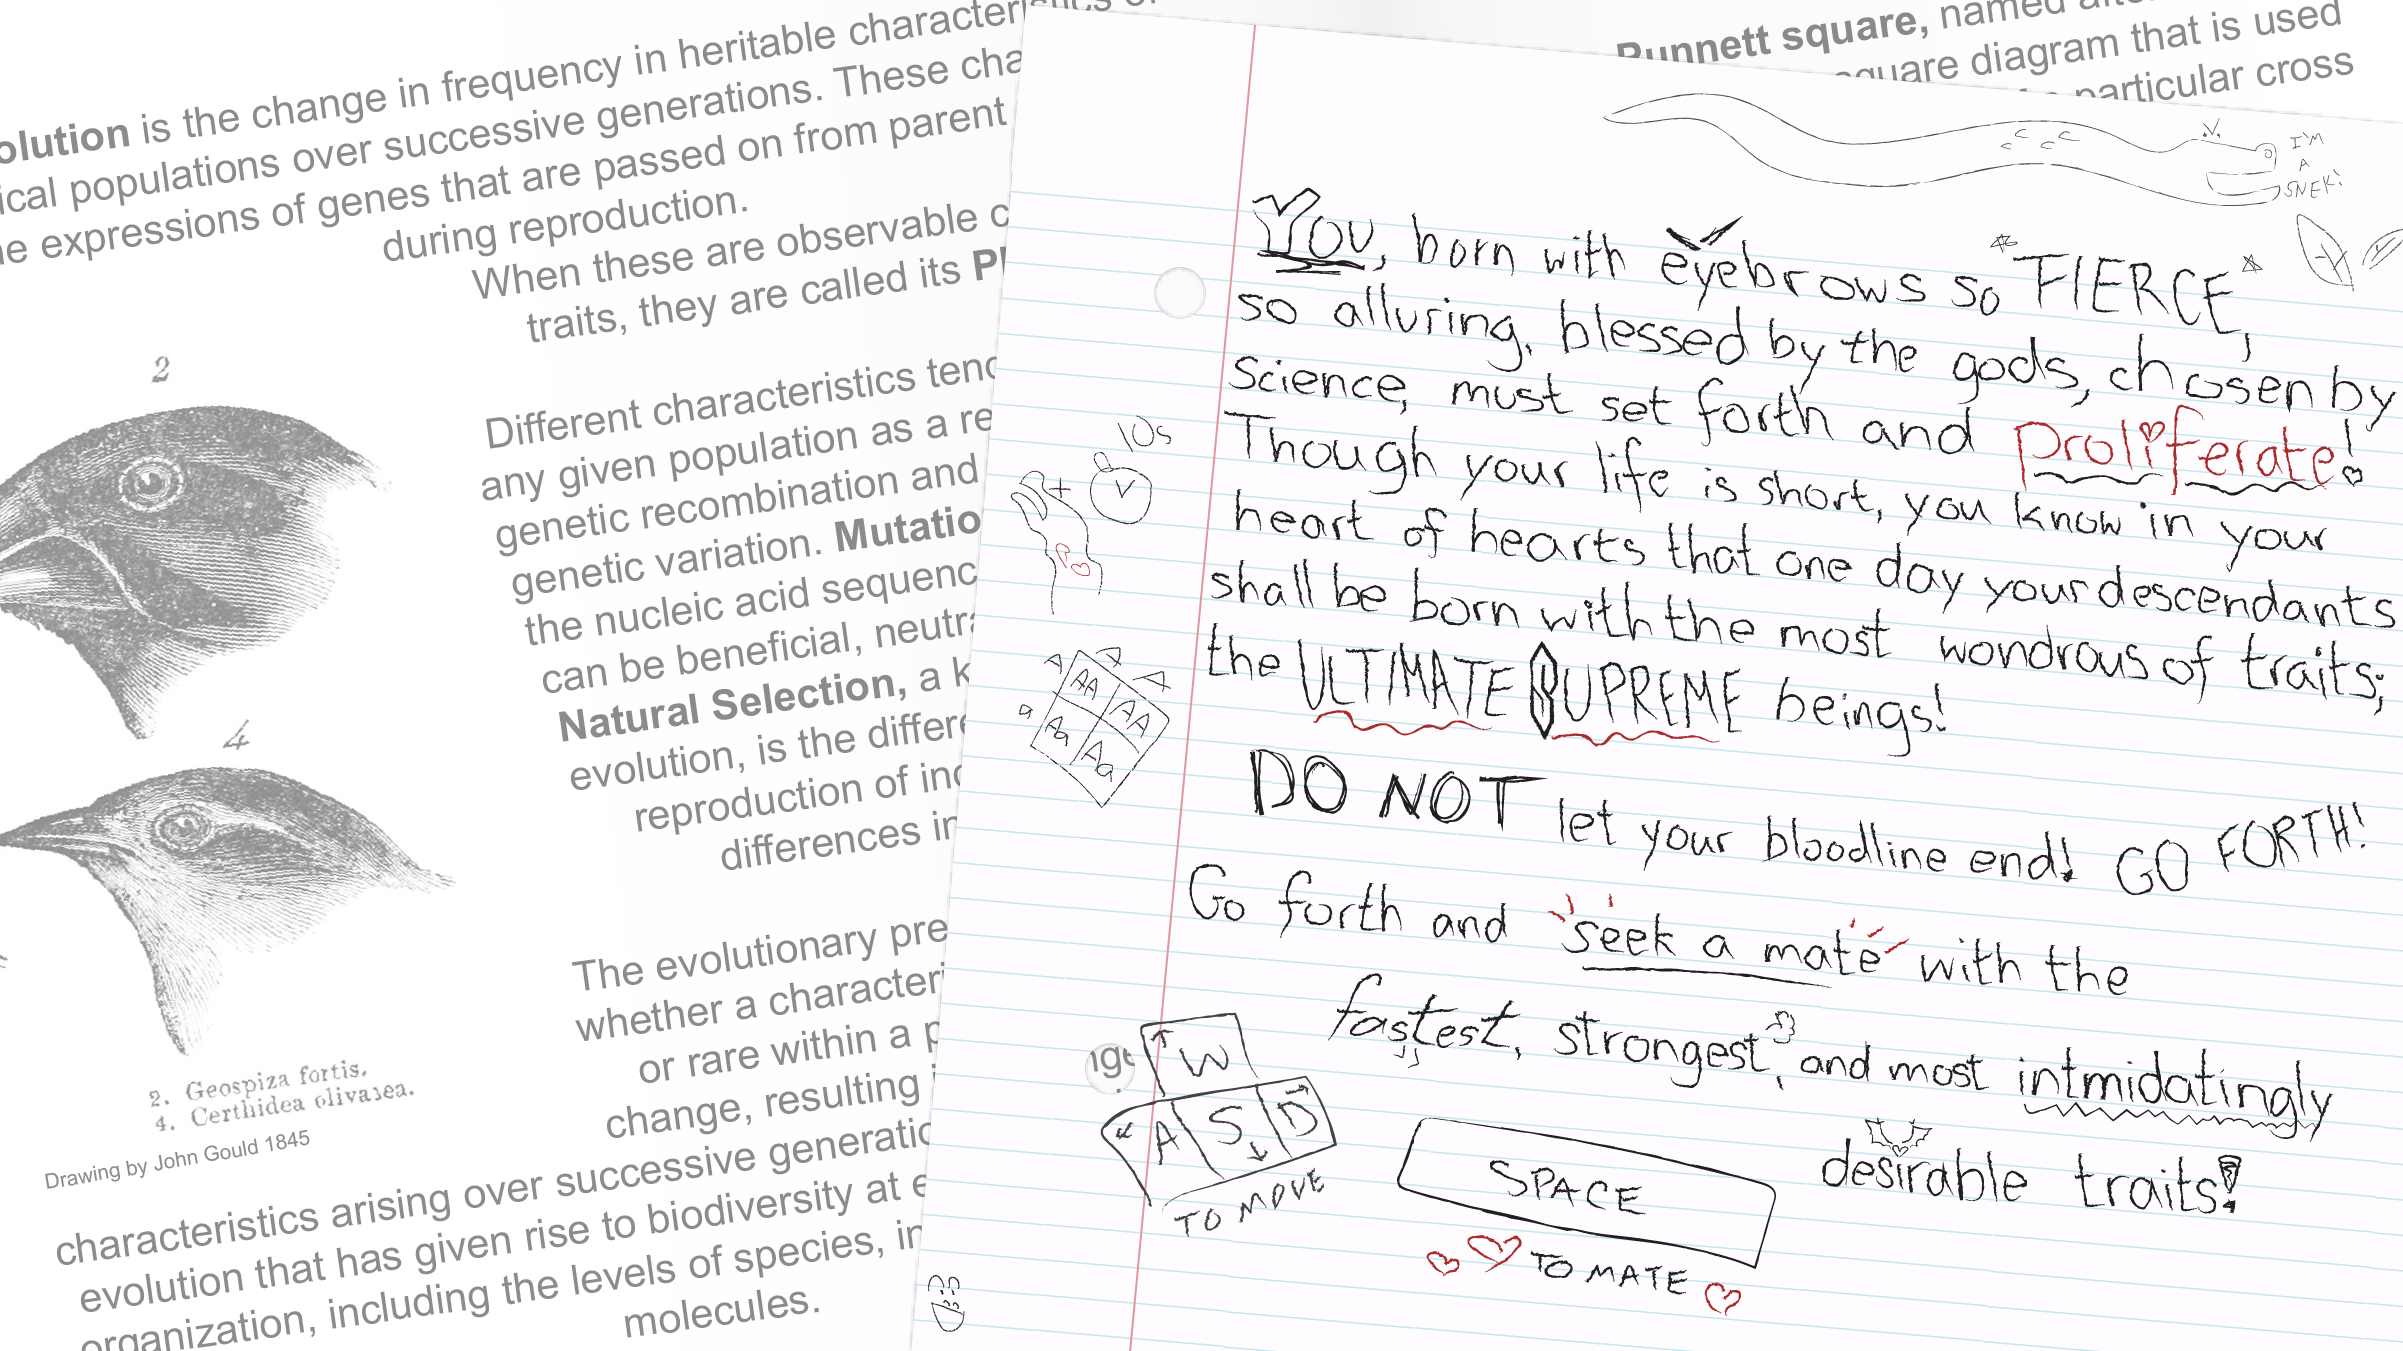 olution is the change in frequency in heritable characteristics of
ical populations over successive generations. These cha
e expressions of genes that are passed on from parent
during reproduction.
When these are observable c
traits, they are called its P
Different characteristics tend
any given population as a re
genetic recombination and
genetic variation. Mutatio
the nucleic acid sequenc
can be beneficial, neutra
Natural Selection, a k
evolution, is the differe
reproduction of ind
differences in
The evolutionary pre
whether a characteri
or rare within a p
change, resulting i
characteristics arising over successive generatio
evolution that has given rise to biodiversity at e
organization, including the levels of species, in
molecules.
2
4
2. Geospiza fortis.
4. Certhidea olivasea.
Drawing by John Gould 1845
Punnett square, named afte
square diagram that is used
particular cross
I'M
A
SNEK!
You, born with eyebrows so *FIERCE*,
so alluring, blessed by the gods, chosen by
science, must set forth and proliferate!
Though your life is short, you know in your
heart of hearts that one day your descendants
shall be born with the most wondrous of traits;
the ULTIMATE SUPREME beings!
DO NOT let your bloodline end! GO FORTH!
Go forth and seek a mate with the
fastest, strongest, and most intmidatingly
desirable traits!
+ 10s
A A
A AA AA
a Aa Aa
nge
W
A S D
TO MOVE
SPACE
TO MATE